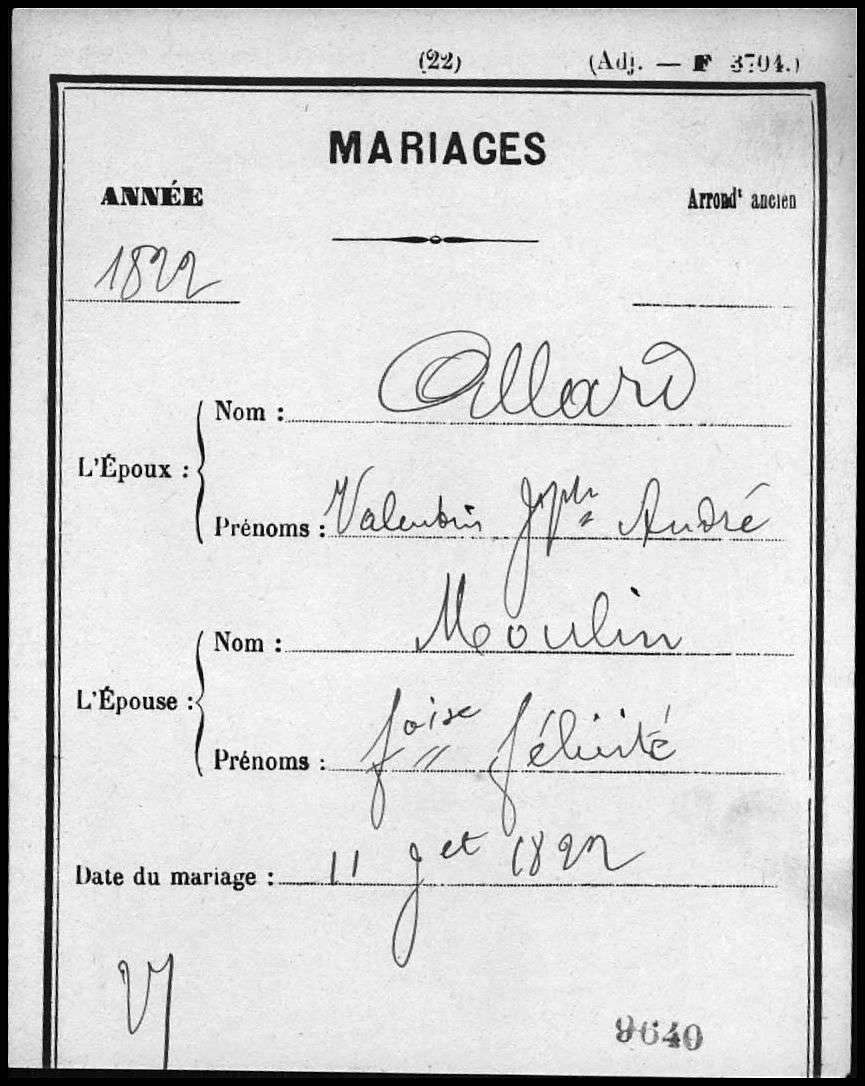 (22) (Adj. — F 3704.)
MARIAGES
ANNÉE Arrondt ancien
1822
Nom : Allard
L'Époux :
Prénoms : Valentin Jph André
Nom : Moulin
L'Épouse :
Prénoms : foise félicité
Date du mariage : 11 jet 1822
9640